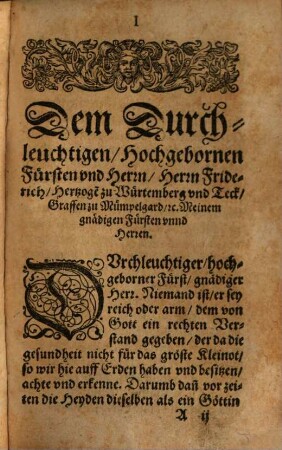 1
Dem Durch-
leuchtigen/ Hochgebornen
Fürsten vnd Herrn/ Herrn Fride-
rich/ Hertzogẽ zu Würtemberg vnd Teck/
Graffen zu Mümpelgard/ ꝛc. Meinem
gnädigen Fürsten vnnd
Herren.
DVrchleuchtiger/ hoch-
geborner Fürst/ gnädiger
Herꝛ. Niemand ist/ er sey
reich oder arm/ dem von
Gott ein rechten Ver-
stand gegeben/ der da die
gesundheit nicht für das gröste Kleinot/
so wir hie auff Erden haben vnd besitzen/
achte vnd erkenne. Darumb dañ vor zei-
ten die Heyden dieselben als ein Göttin
A ij